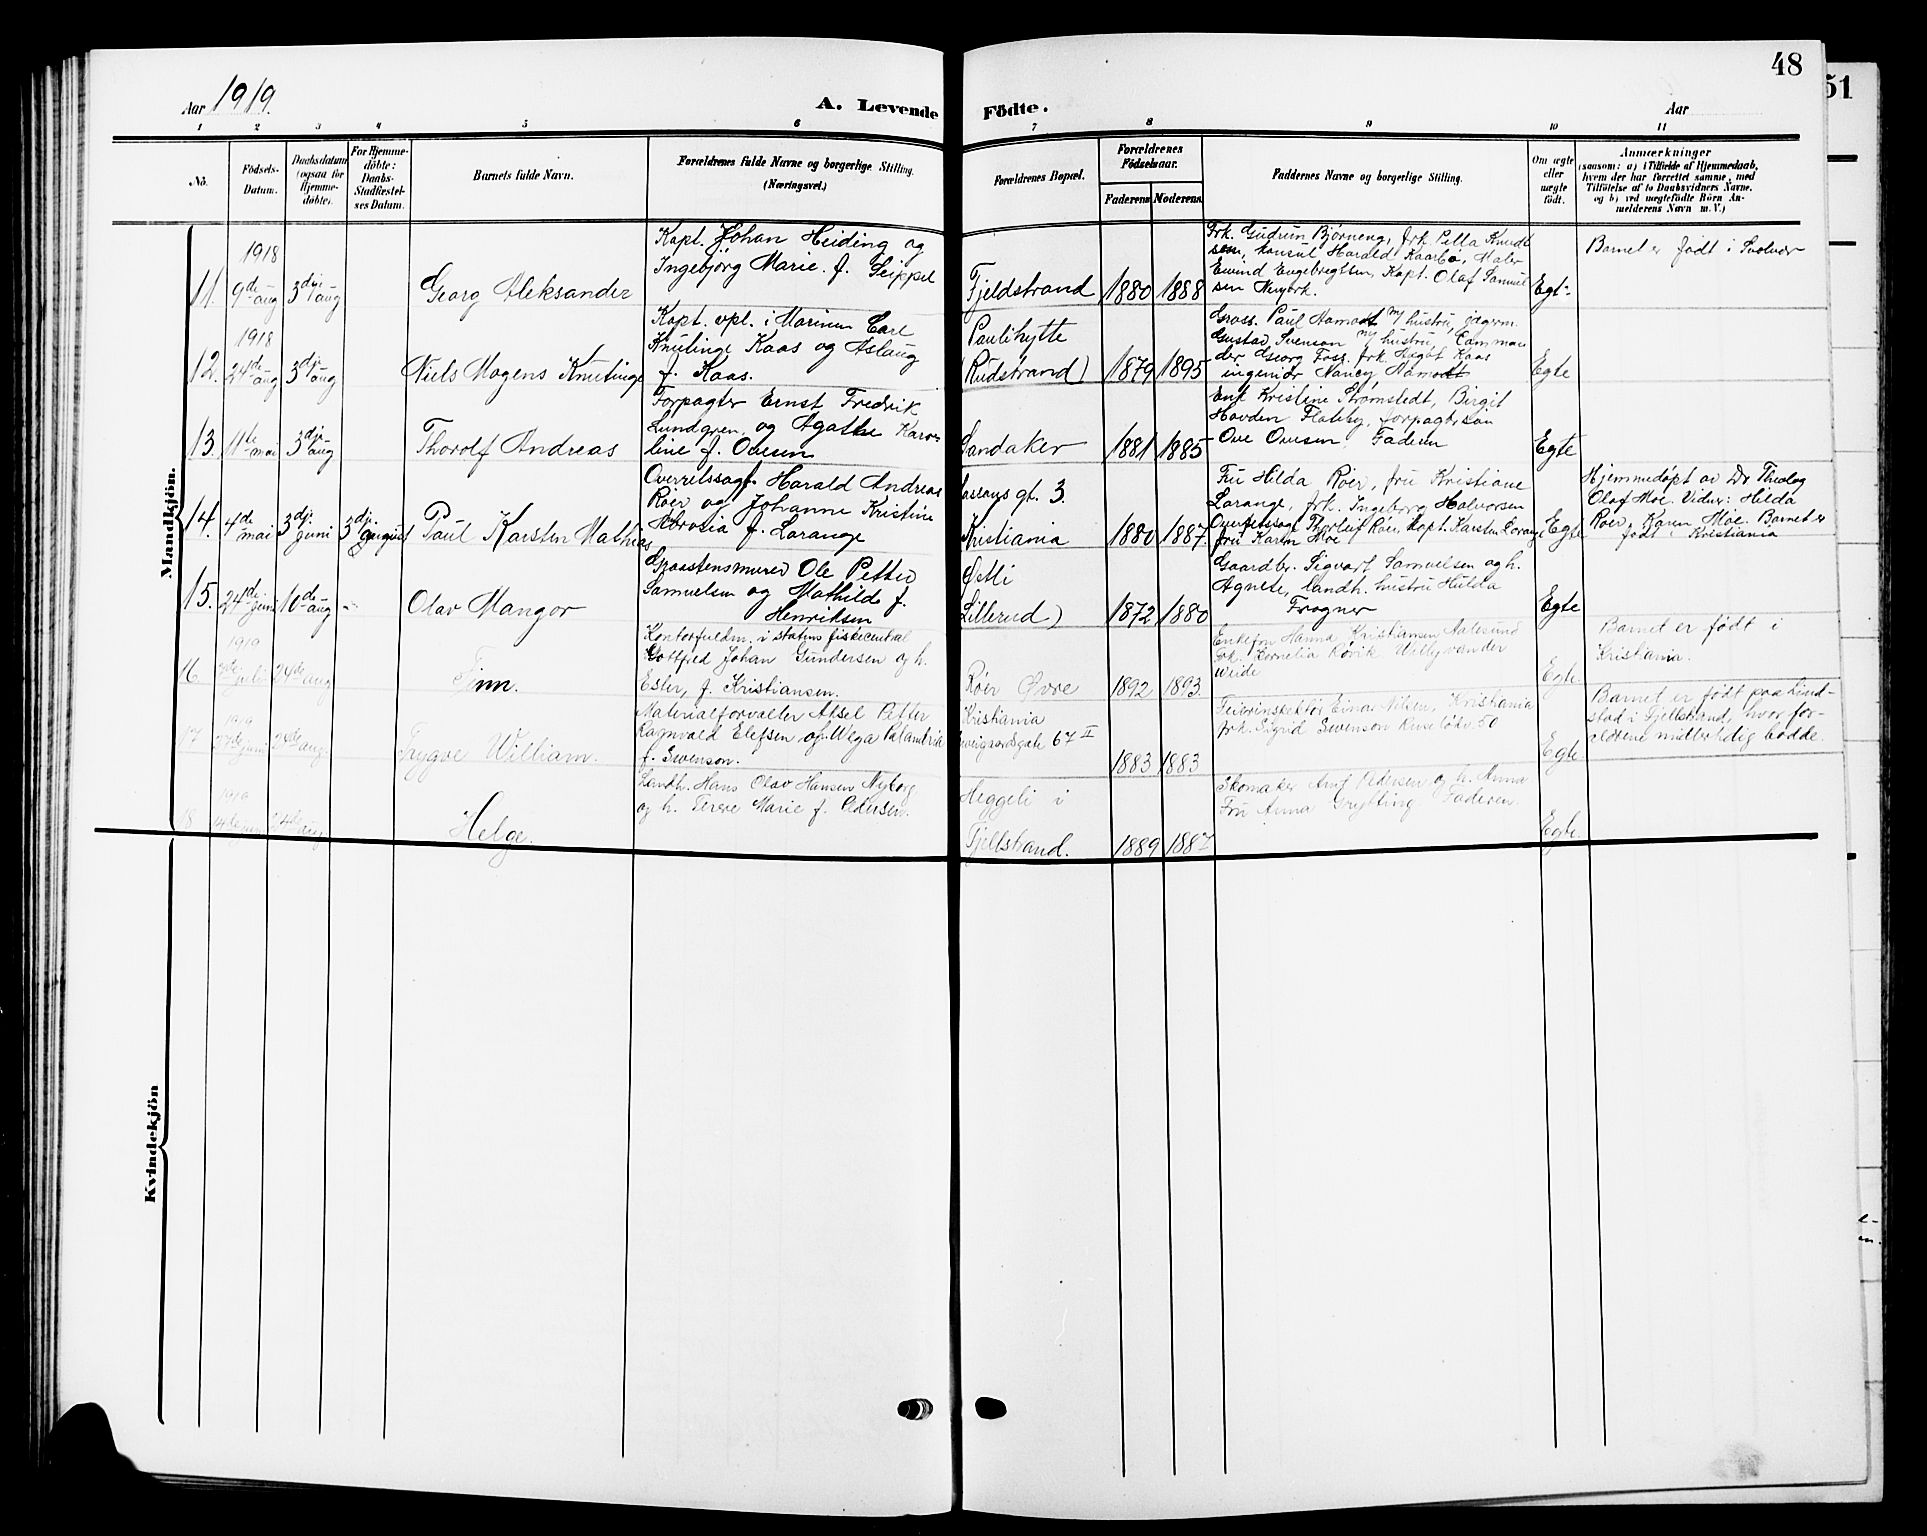 48
51
Aar 1919.
A. Levende Födte.
Aar
1 2 3 4 5 6 7 8 9 10 11
No.
Födsels-Datum.
Daabsdatum (ogsaa for Hjemmedöbte).
For Hjemmedöbte: Daabs-Stadfæstelses Datum.
Barnets fulde Navn.
Forældrenes fulde Navne og borgerlige Stilling.
(Næringsvei.)
Forældrenes Bopæl.
Forældrenes Födselsaar.
Faderens
Moderens
Faddernes Navne og borgerlige Stilling.
Om ægte eller uægte födt.
Anmærkninger
(saasom: a) i Tilfælde af Hjemmedaab,
hvem der har forrettet samme, med
Tilföielse af to Daabsvidners Navne,
og b) ved uægtefödte Börn An-
melderens Navn m. V.)
Mandkjön.
1918
11. 9de aug 3dje aug
Georg Aleksander
Kapt. Johan Heiding og
Ingebjörg Marie f. Seippel
Fjeldstrand 1880 1888
Frk. Gudrun Bjorneng, frk. Petta Knudt
sen, konsul Harald Kaarbö, Maler
Eivind Engebregtsen, Kapt. Olaf Samuel
sen Newyork.
Egt-
Barnet er født i Svolvær
1918
12. 24de aug 3dje aug
Niels Mogens Knutinge
Kapt. vpl. i Marinen Carl
Knutinge Kaas og Aslaug
f. Kaas.
Paulihytte
(Rudstrand) 1879 1895
Gross. Paul Hamodt m/ hustru, jægerm.
Gustav Svenson m/ hustru, Comman
der Georg Foss, frk. Kaas
ingeniør Nancy Hamodt
Egte
13. 11te mai 3dje aug
Thorolf Andreas
Forpagter Ernst Fredrik
Lundgren og Agathe Karo
line f. Ovesen
Sandaker 1881 1885
Enk Kristine Strømstedt, Birgit
Hovden Flateby, forpagt. søn
Ove Ovesen, Faderen
Egte
14. 4de mai 3dje juni 3dje august
Paul Karsten Mathias
Overretssagf. Harald Andreas
Roer og Johanne Kristine
f. Lorange
gt. 3.
Kristiania 1880 1887.
Fru Hilda Röer, fru Kristiane
Lorange, frk. Ingeborg Halvorsen
Overretssag Thorleif Röer, Kapt. Karsten Lorange
fru Karen Moe
Egte
Hjemmedøpt av Dr Theolog
Olaf Moe. Vidner: Hilda
Roer, Karen Moe. Barnet er
født i Kristiania
15. 24de juni 10de aug -
Olav Mangor
Graastensmurer Ole Petter
Samuelsen og Mathilde f.
Henriksen
Lillerud) 1872 1880
Gaardbr. Sigvart Samuelsen og h.
Agnete, landh. hustru Hulda
Frogner
Egte
1919
16 juli 24de aug
Finn.
Kontorfuldm. i statens fiskecentral
Gottfred Johan Gundersen og h.
Ester, f. Kristiansen.
Röer Øvre 1892 1893
Enkefru Hanna Kristiansen Aalesund
Frk. Kornelia Røvik Willy van der
Weide
Egte
Barnet er født i
Kristiania.
1919
17 27de juni 24de aug.
Trygve William.
Materialforvalter Aksel Petter
Ragnvald Elefsen og Wega
f. Svenson.
Kristiania
67 II 1883 1883
Feierinspektør Einar Nilsen, Kristiania
frk. Sigrid Svenson Ruseløkv 50
Egte
Barnet er født paa
stad i Fjellstrand, hvor for-
ældrene midlertidig bodde.
1919
18 14de juni 24de aug
Helge.
Landh. Hans Olav Hansen Nyborg
og h. Marie f. Pedersen.
Heggeli i
Fjellstrand. 1889 1887
Skomaker Arnt Pedersen og h. Anna
Fru Anna Grytting Faderen.
Egte
Kvindekjön